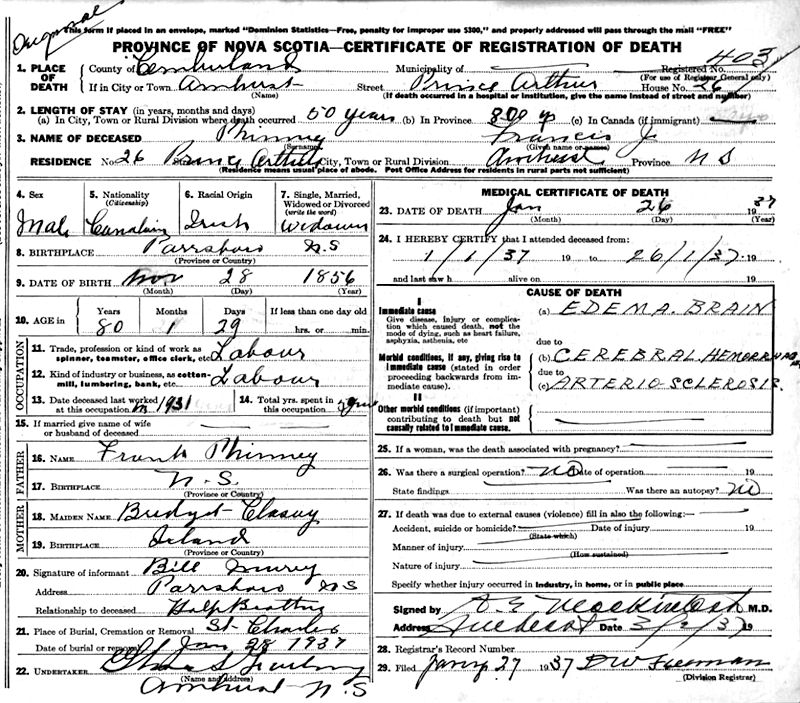 This form if placed in an envelope, marked "Dominion Statistics—Free, penalty for improper use $300," and properly addressed will pass through the mail "FREE"
PROVINCE OF NOVA SCOTIA—CERTIFICATE OF REGISTRATION OF DEATH
Registered No. 403
(For use of Registrar General only)
1. PLACE OF DEATH County of Cumberland Municipality of
If in City or Town Amherst Street Prince Arthur House No. 26
(Name) (If death occurred in a hospital or institution, give the name instead of street and number)
2. LENGTH OF STAY (in years, months and days)
(a) In City, Town or Rural Division where death occurred 50 years (b) In Province 80 y (c) In Canada (if immigrant)
3. NAME OF DECEASED Phinney Francis J
(Surname) (Given name or names)
RESIDENCE No. 26 Prince Arthur City, Town or Rural Division Amherst Province N S
(Residence means usual place of abode. Post Office Address for residents in rural parts not sufficient)
4. Sex 5. Nationality (Citizenship) 6. Racial Origin 7. Single, Married, Widowed or Divorced (write the word)
Male Canadian Irish Widower
8. BIRTHPLACE Parrsboro N.S
(Province or Country)
9. DATE OF BIRTH Nov 28 1856
(Month) (Day) (Year)
10. AGE in Years Months Days If less than one day old
80 1 29 hrs. or min.
OCCUPATION
11. Trade, profession or kind of work as spinner, teamster, office clerk, etc. Labour
12. Kind of industry or business, as cotton-mill, lumbering, bank, etc. Labour
13. Date deceased last worked at this occupation in 1931 14. Total yrs. spent in this occupation
15. If married give name of wife or husband of deceased
FATHER
16. NAME Frank Phinney
17. BIRTHPLACE N.S
(Province or Country)
MOTHER
18. MAIDEN NAME Bridget
19. BIRTHPLACE Island
(Province or Country)
20. Signature of informant Bill
Address Parrsboro N S
Relationship to deceased Half
21. Place of Burial, Cremation or Removal St Charles
Date of burial or removal Jan 28 1937
22. UNDERTAKER
(Name and Address)
Amherst N.S
MEDICAL CERTIFICATE OF DEATH
23. DATE OF DEATH Jan 26 1937
(Month) (Day) (Year)
24. I HEREBY CERTIFY that I attended deceased from:
1/1/37 19 to 26/1/37 19
and last saw h alive on 19
CAUSE OF DEATH
I
Immediate cause
Give disease, injury or complication which caused death, not the mode of dying, such as heart failure, asphyxia, asthenia, etc
(a) EDEMA. BRAIN
due to
Morbid conditions, if any, giving rise to immediate cause (stated in order proceeding backwards from immediate cause).
(b) CEREBRAL HEMORRHAGE
due to
(c) ARTERIO-SCLEROSIS.
II
Other morbid conditions (if important) contributing to death but not causally related to immediate cause.
25. If a woman, was the death associated with pregnancy?
26. Was there a surgical operation? no Date of operation 19
State findings Was there an autopsy? no
27. If death was due to external causes (violence) fill in also the following:—
Accident, suicide or homicide? Date of injury 19
(State which)
Manner of injury
(How sustained)
Nature of injury
Specify whether injury occurred in industry, in home, or in public place
Signed by M.D.
Address Amherst Date 19
28. Registrar's Record Number
29. Filed 27 1937
(Division Registrar)